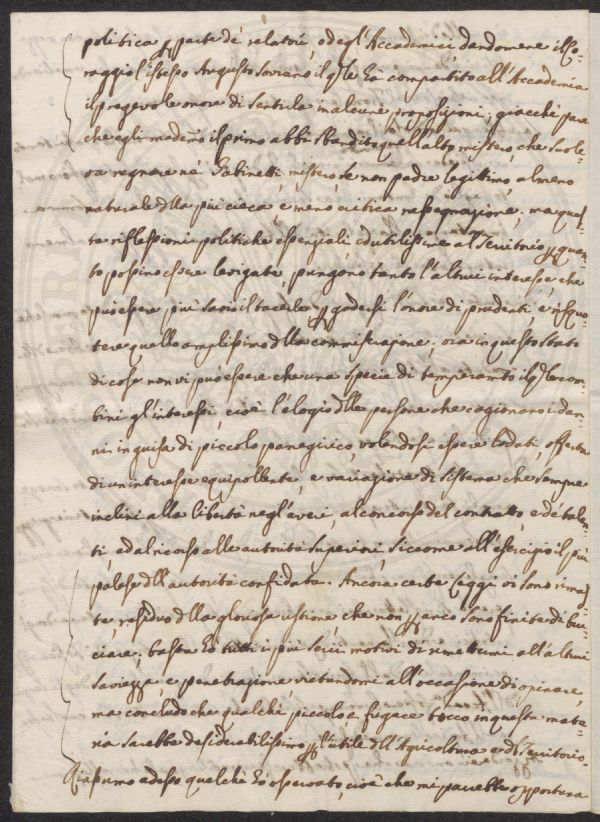 politica p parte de' relatori, o degl'Accademici dandomene il Co-
raggio l'istesso Augusto Sovrano il qle hà compartito all'Accademia
il pregevole onore di Sentirla in alcune proposizioni; giacchè pare
che egli medmo il primo abbi sbandito quell'alto mistero, che sole-
va regnare nè Gabinetti, mistero se non padre legittimo, almeno
naturale dlla più cieca, e meno critica rassegnazione; ma ques-
te riflessioni politiche essenziali, ed utilissime al Territorio p quan-
to possino essere levigate, pungono tanto l'altrui interesse che
può essere più savio il tacerle p godersi l'onore di prudenti, e risquo-
tere quello amplissimo dlla commiserazione; ora in questo stato
di cose non vi può essere che una specie di temperamto il qle com-
bini gl'interessi, cioè l'elogio dlle persone che cagionano i dan-
ni in guisa di piccolo panegirico, volendosi essere lodati, offerta
di un interesse equipollente, e variazione di sistema che sempre
inclini alla libertà negl'averi, al concorso del contratto, e de' talen-
ti, ed al ricorso alle autorità superiori, siccome all'esercizio il più
palese dll'autorità confidata. Ancora certe leggi vi sono rimas-
te, residuo dlla gloriosa ustione, che non p anco sono finite di bru-
ciare; basta hò tutti i più serii motivi di rimettermi all'altrui
saviezza, e penetrazione vietandomi all'occasione di opinare,
ma concludo che qualche piccolo e fugace tocco in questa mate-
ria sarebbe desiderabilissimo p l'utile dll'Agricoltura e dl Territorio.
Riassumo adesso qualche hò osservato, cioè che mi parrebbe opportuna